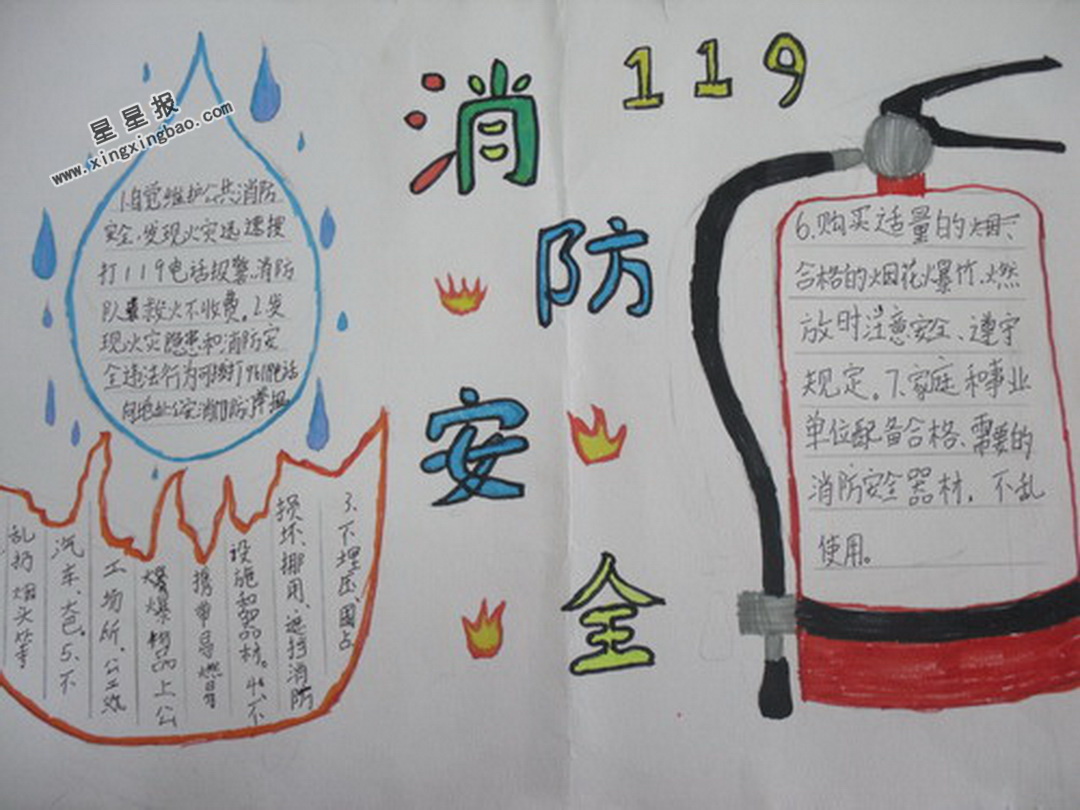 星星报
www.xingxingbao.com
119
消
防
安
全
1.自觉维护公共消防
安全,发现火灾迅速拨
打119电话报警,消防
队救火不收费。2.发
现火灾隐患和消防安
全违法行为可拨打96119电话
向地公安消防
3.不埋压、圈占
损坏、挪用、遮挡消防
设施和器材。4、不
携带易燃易
爆物品上公
工场所、公工
汽车、大巴。5、不
乱扔烟头等
6.购买适量的烟、
合格的烟花爆竹,燃
放时注意安全、遵守
规定。7.家庭和事业
单位配备合格、需要的
消防安全器材,不乱
使用。